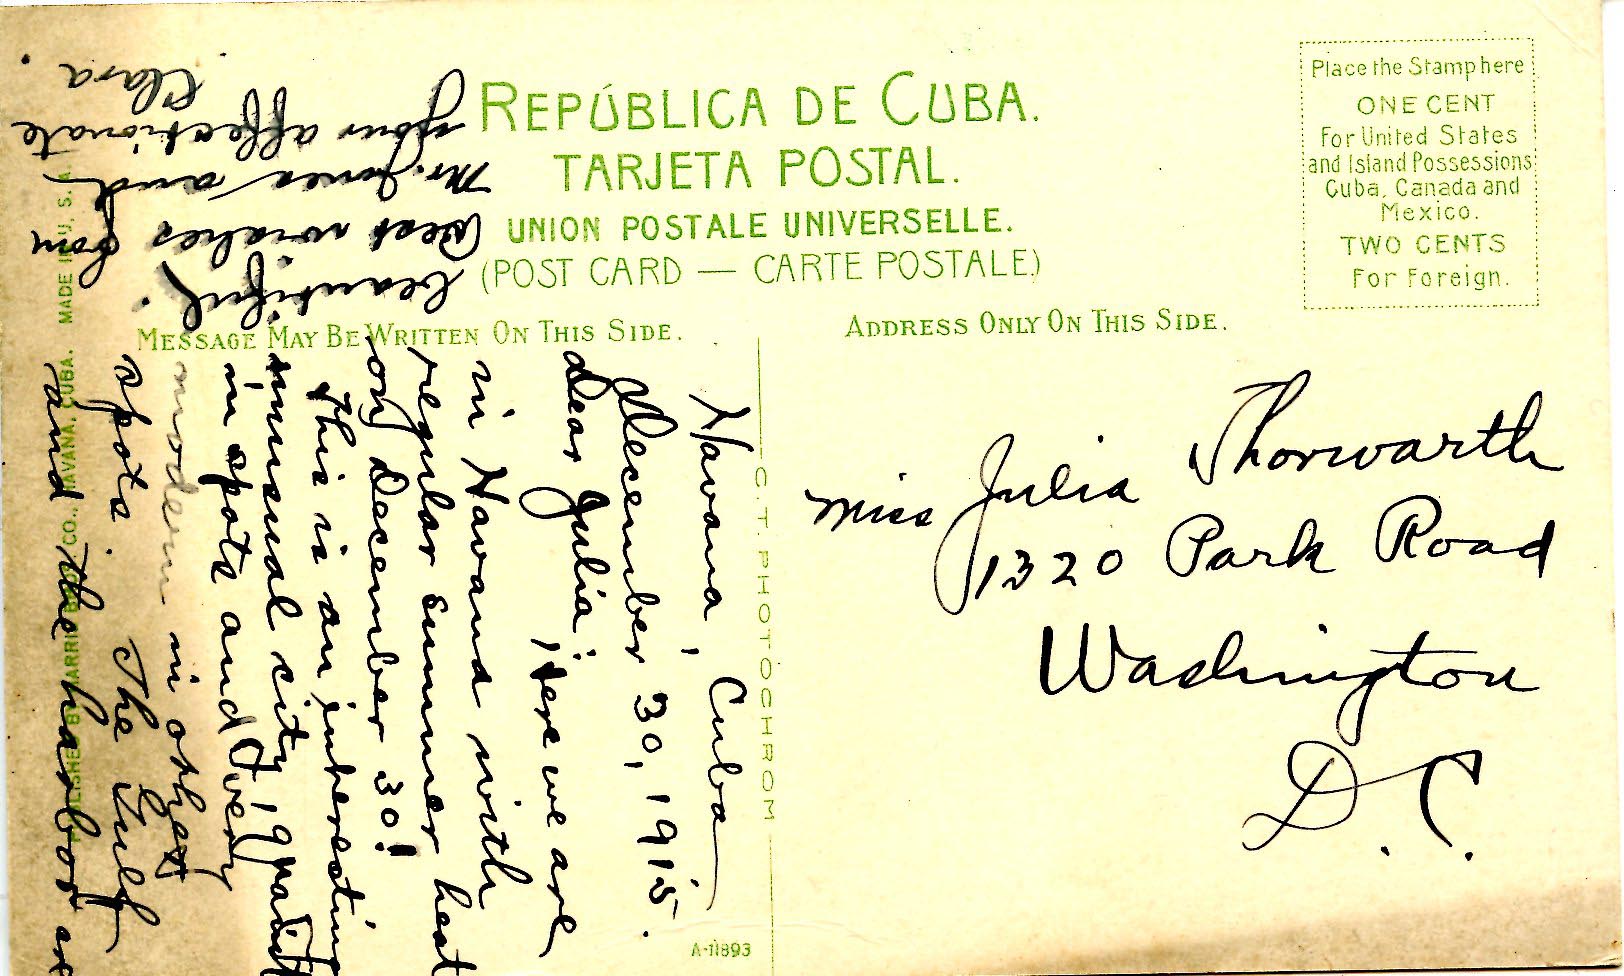 REPÚBLICA DE CUBA.
TARJETA POSTAL.
UNION POSTALE UNIVERSELLE.
(POST CARD — CARTE POSTALE.)
MESSAGE MAY BE WRITTEN ON THIS SIDE.
ADDRESS ONLY ON THIS SIDE.
Place the Stamp here
ONE CENT
For United States
and Island Possessions
Cuba, Canada and
Mexico.
TWO CENTS
For Foreign.
Miss Julia Thorwarth
1320 Park Road
Washington
D.C.
Havana, Cuba
December 30, 1915.
Dear Julia: Here we are
in Havana with
regular summer heat
on December 30!
This is an interesting
unusual city, quaint
in spots and very
modern in other
spots. The Gulf
and the harbor are
beautiful.
Best wishes from
Mr. Jones and
your affectionate
Clara.
C. T. PHOTOCHROM
A-11893
PUBLISHED BY HARRIS BROS CO., HAVANA, CUBA. MADE IN U. S. A.